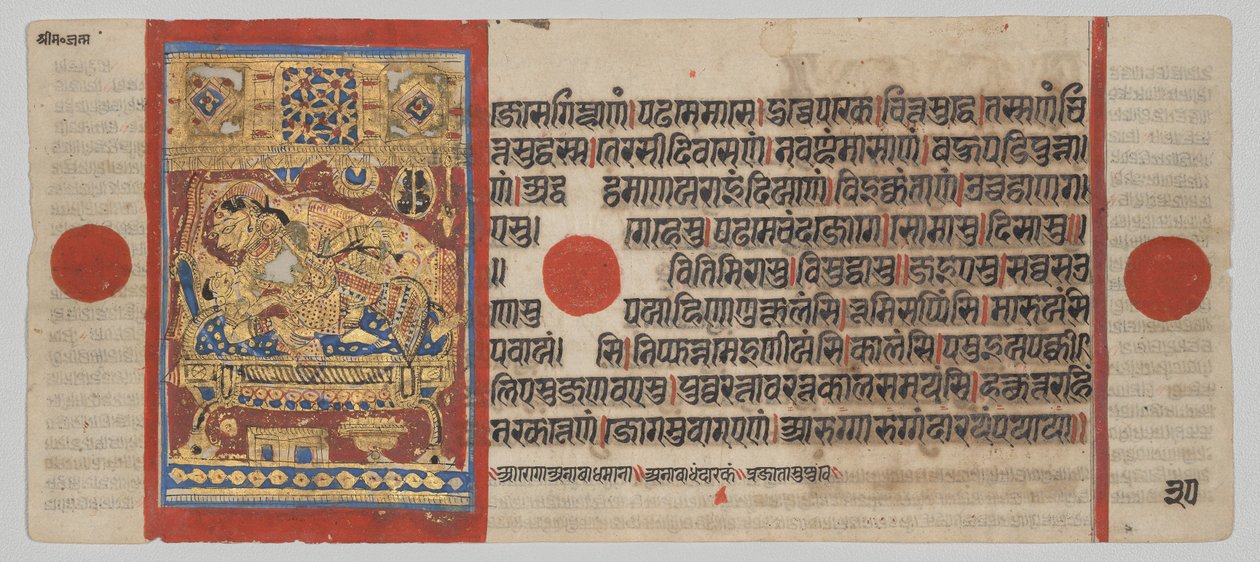 श्रीम॰जन्म
जे से गिम्हाणं।पढमे मासे।दुच्चे पक्खे।चित्तसुद्धे।तस्सणं चि
त्तसुद्धस्स।तेरसीदिवसेणं।नवण्हं मासाणं।बहुपडिपुन्ना
णं।अद्ध ट्ठमाणयराइंदियाणं।विइक्कंताणं।उच्चट्ठाणग
एसु। गहेसु।पढमे चंदजोगे।सोमासु।दिसासु॥
॥ वितिमिरासु।विसुद्धासु॥जइएसु।सव्वसउ
णेसु पयाहिणाणुकूलंसि।भूमिसप्पिंसि।मारुयंसि
पवायं। सि।निप्फन्नमेइणीयंसि।कालंसि।पमुइयपक्की
लिएसु जणवएसु।पुव्वरत्तावरत्तकालसमयंसि।हत्थुत्तराहिं
नरकत्तेणं।जोगमुवागएणं।आरुग्गारुग्गं दारयं पयाया॥
अनाबाधंदारकं
३०